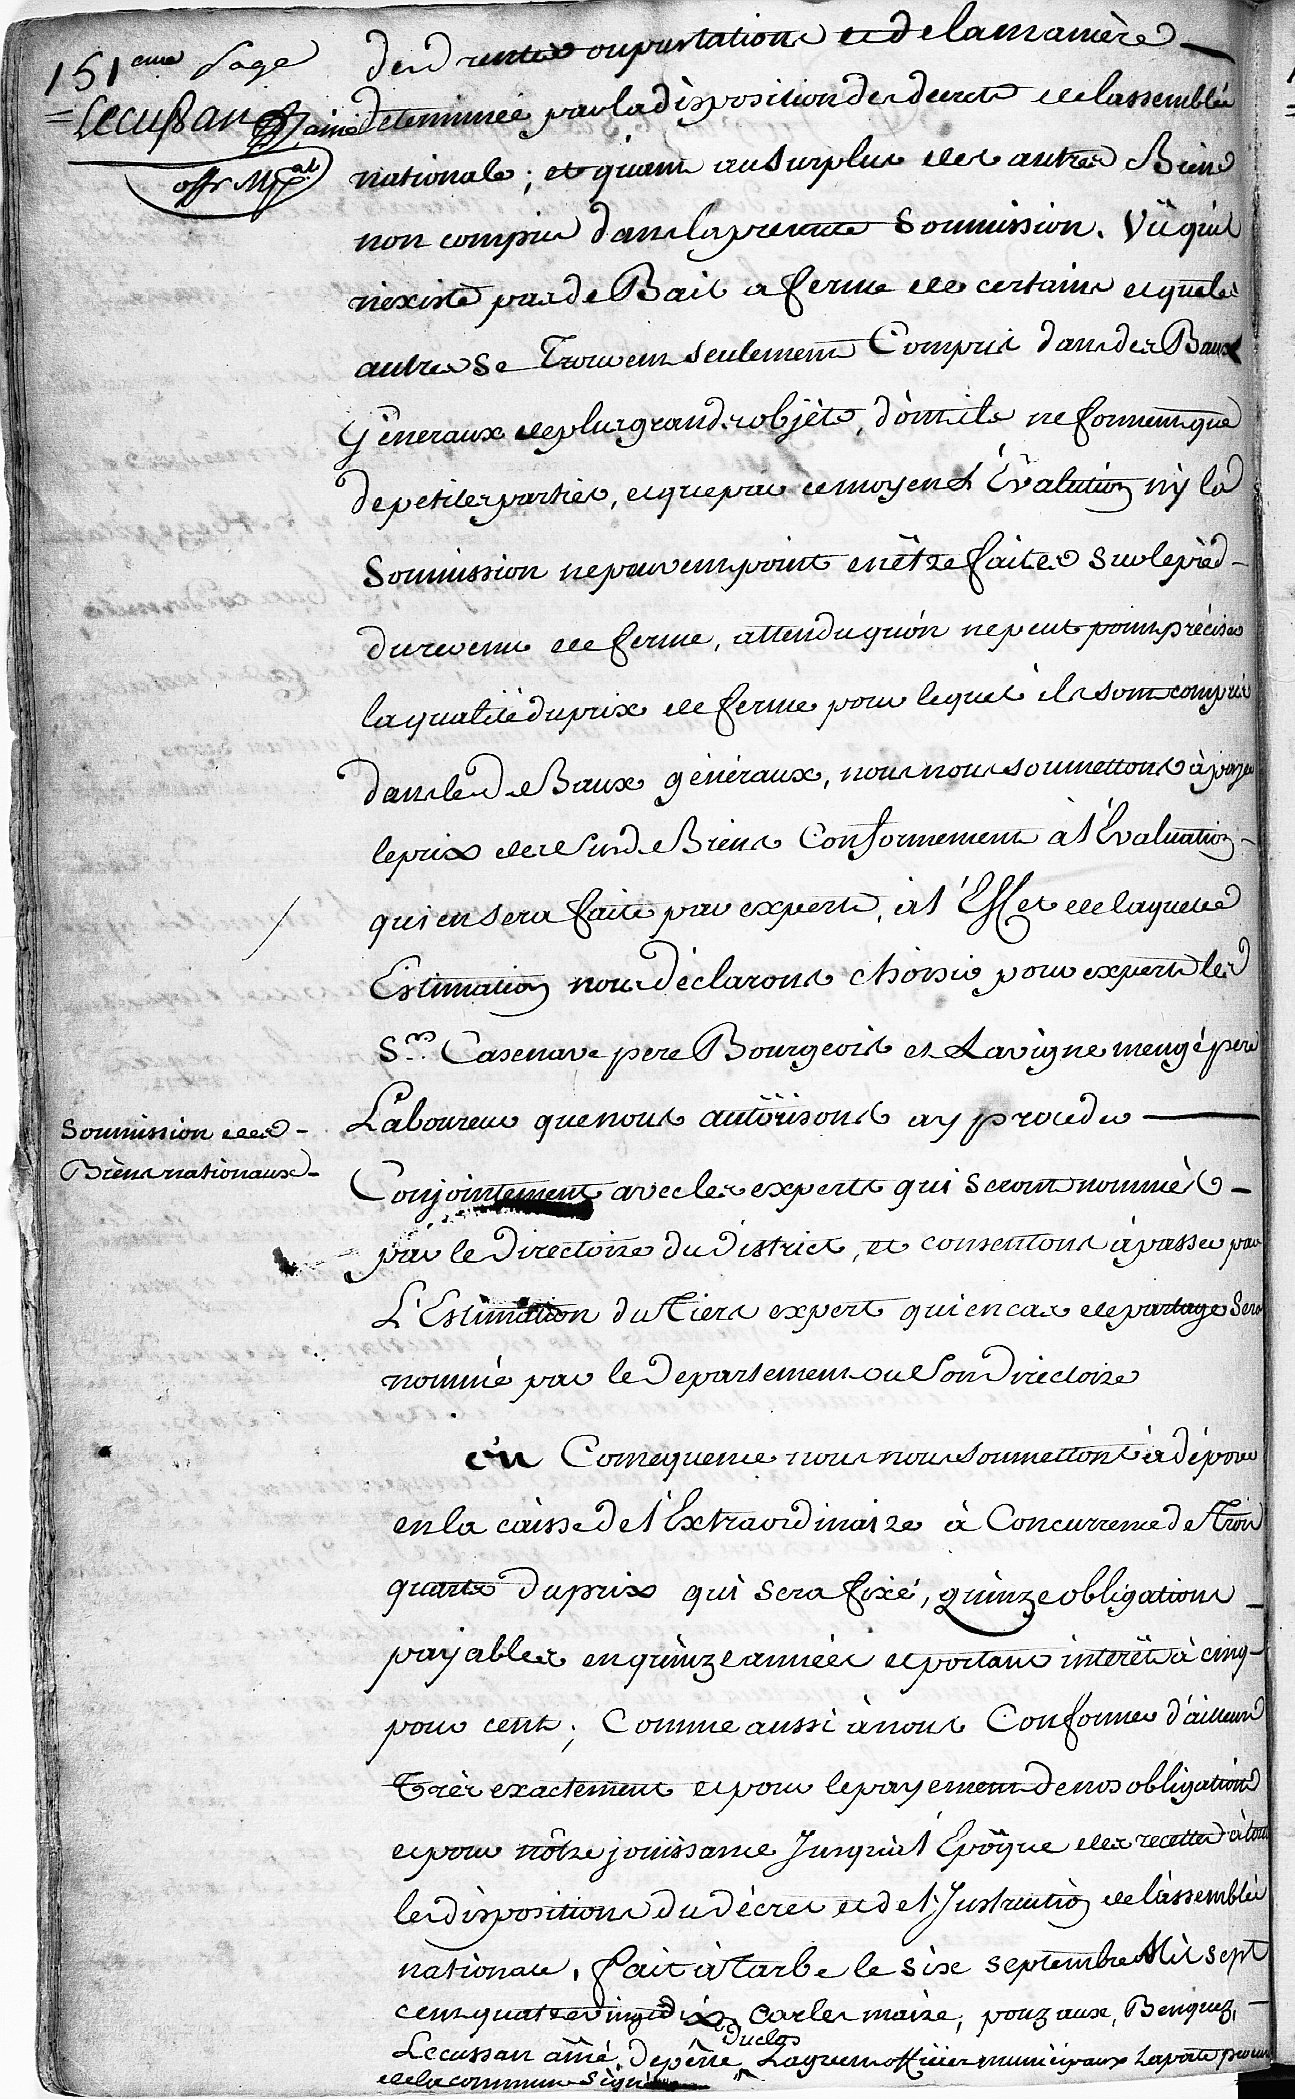 151eme page
Lecussan ainé
offr Mpal
desd rentes ou prestations et de la manière
determinée par la disposition des decrets de lassemblée
nationale ; et quant au surplus des autres Biens
non compris dans la presente Soumission. Vû quil
nexiste pas de Bail a ferme de certains et que les
autres se Trouvent seulement Compris dans des Baux
Géneraux de plus grands objèts, dònt ils ne forment que
de petites parties, et que par ce moyen L'Evalution ny la
Soumission ne peuvent point en être faites sur le pied
du revenu de ferme, attendu quón ne peut point préciser
la qualité du prix de ferme pour lequel ils sont compris
dans lesd. Baux généraux, nous nous soumettons à payer
le prix desd. Biens Conformement à l'Evaluation
qui en sera faite par experts, à l'Effet de laquelle
Estimation nous déclarons choisir pour experts les
Srs. Casenave pere Bourgeois et Lavigne mengé pere
Laboureur que nous autorisons a y proceder
Soumission des
Bièns nationaux
Conjointement avec les experts qui seront nommés
par le Directoire du District, et consentons à passer par
L'Estimation du Tiers expert qui en cas de partage Sera
nommé par le Departement ou Son Directoire
en Consequence nous nous soumettons à déposer
en la caisse de l'Extraordinaire à Concurrence de Trois
quarts du prix qui sera fixé, quinze obligations
payables en quinze années et portant interêt à cinq
pour cent ; Comme aussi à nous Conformer d'ailleurs
Très exactement et pour le payement de nos obligations
et pour nôtre jouissance Jusqu'à l'Epoque des recettes à toutes
les dispositions du décret et de l'Instruction de l'assemblée
nationale, fait à Tarbe le six septembre Mil sept
cent quatre vingt dix Carles maire, pouzaux, Benquez,
Duclos
Lecussan ainé, depène Lagrem officiers municipaux Laporte procur
de la commune Signés